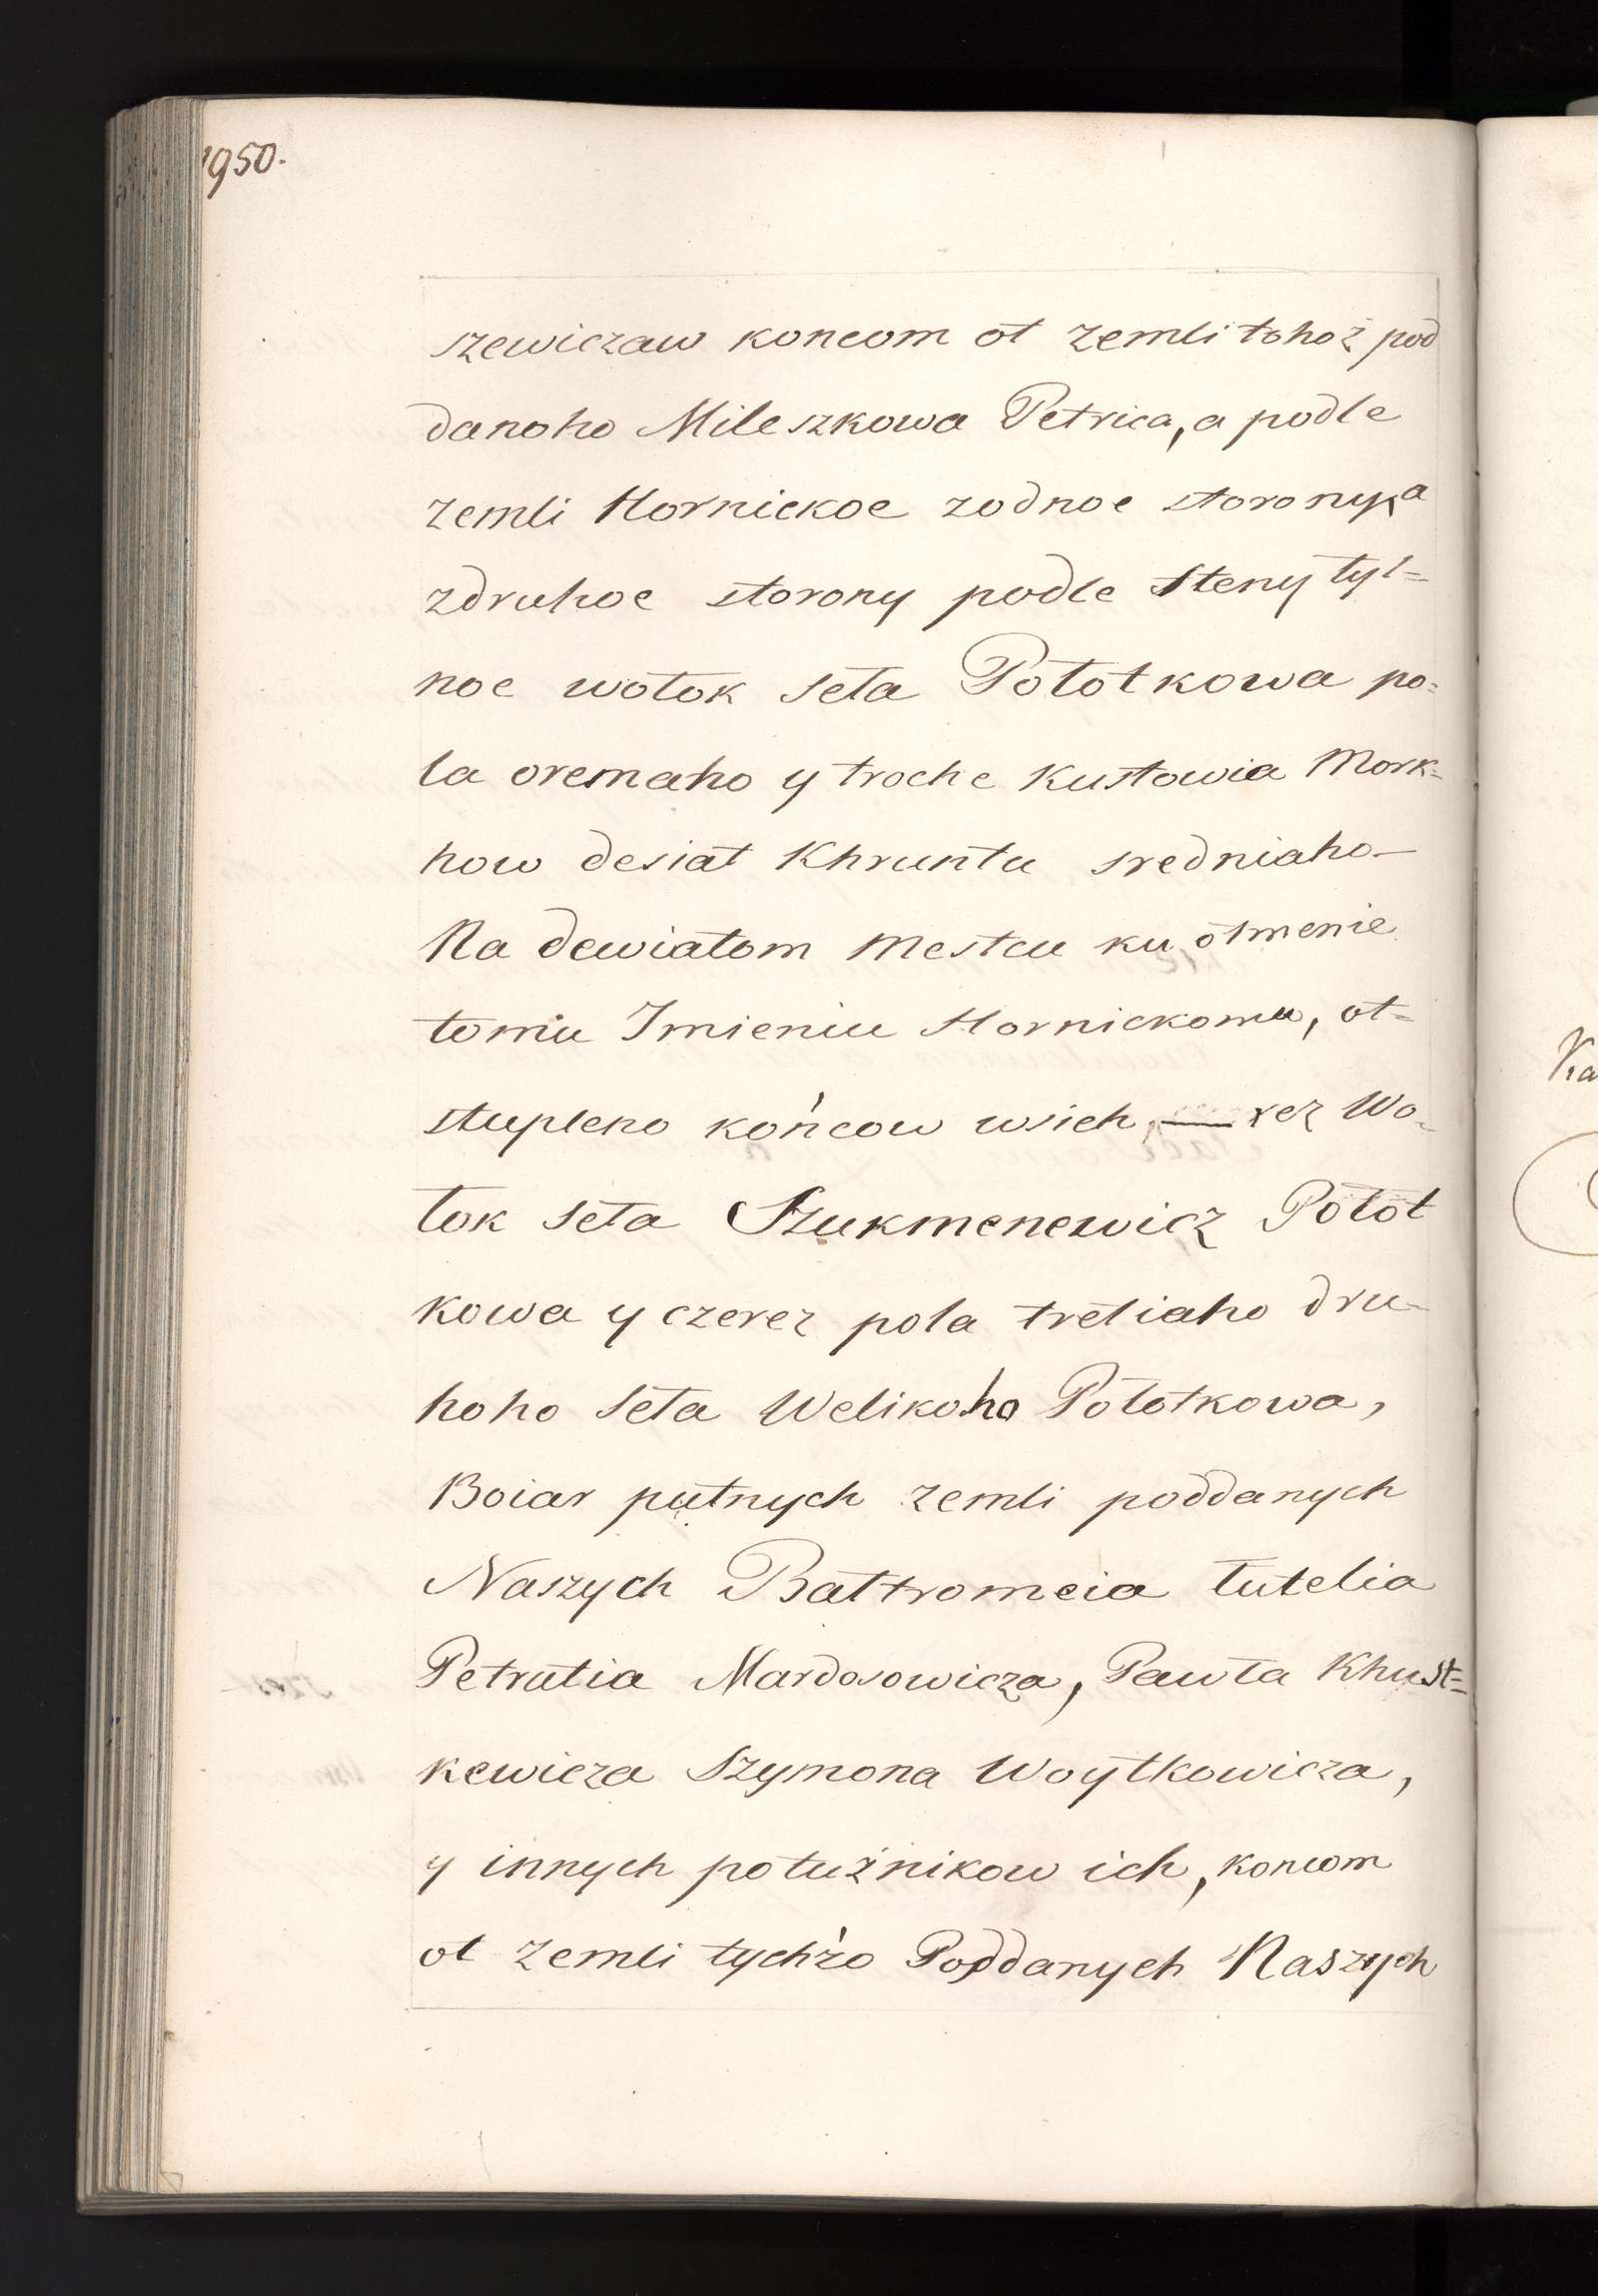 1950.
szewiczaw koncom ot zemli tohoż pod
danoho Mileszkowa Petrica, a podle
zemli Hornickoe zodnoe storony, a
zdruhoe storony podle steny tyl=
noe wołok seła Połotkowa po=
la oremaho y troche Kustowia Mork=
how desiat Khruntu sredniaho—
Na dewiatom mestcu ku otmenie
tomu Imieniu Hornickomu, ot=
stupleno końcow wsich rez Wo=
łok seła Szukmenewicz Połot
kowa y czerez pola tretiaho dru-
hoho seła Welikoho Połotkowa,
Boiar putnych zemli poddanych
Naszych Bałtromeia Łutelia
Petrutia Mardosowicza, Pawła Khust=
kewicza Szymona Woytkowicza,
y innych potużnikow ich, koncom
ot zemli tychżo Poddanych Naszych
Ka